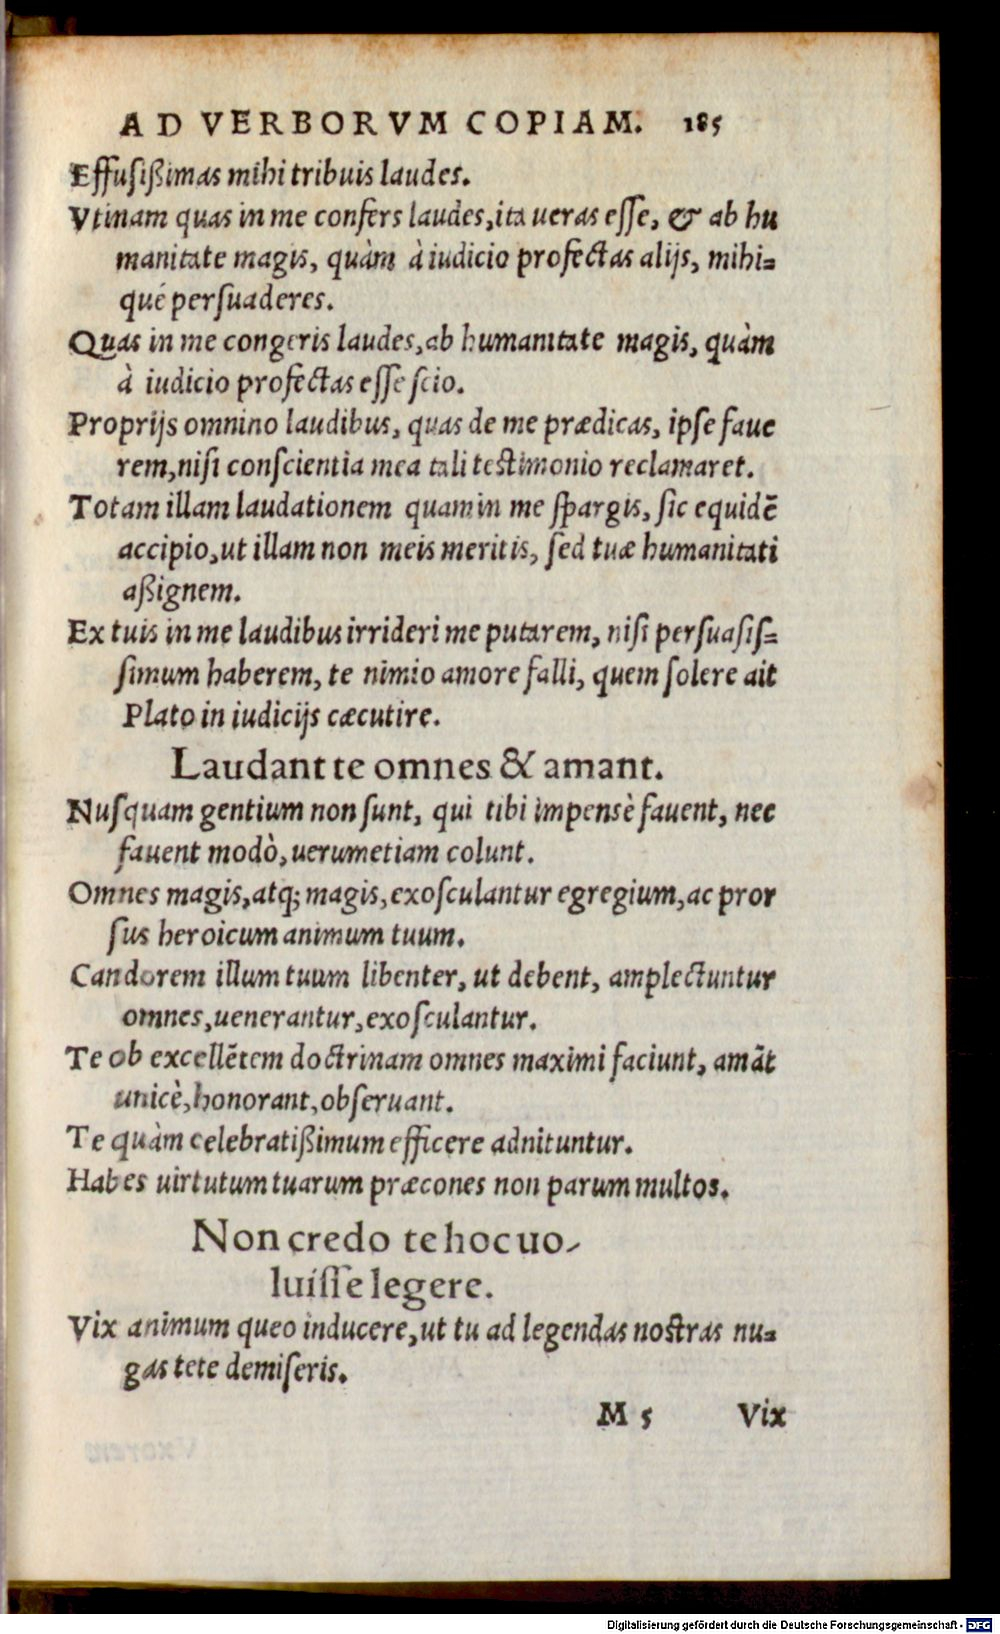 AD VERBORVM COPIAM. 185
Effusißimas mihi tribuis laudes.
Vtinam quas in me confers laudes, ita ueras esse, & ab hu
manitate magis, quàm à iudicio profectas alijs, mihi=
qué persuaderes.
Quas in me congeris laudes, ab humanitate magis, quàm
à iudicio profectas esse scio.
Proprijs omnino laudibus, quas de me prædicas, ipse faue
rem, nisi conscientia mea tali testimonio reclamaret.
Totam illam laudationem quam in me spargis, sic equidẽ
accipio, ut illam non meis meritis, sed tuæ humanitati
aßignem.
Ex tuis in me laudibus irrideri me putarem, nisi persuasis=
simum haberem, te nimio amore falli, quem solere ait
Plato in iudicijs cæcutire.
Laudant te omnes & amant.
Nusquam gentium non sunt, qui tibi impensè fauent, nec
fauent modò, uerumetiam colunt.
Omnes magis, atq; magis, exosculantur egregium, ac pror
sus heroicum animum tuum.
Candorem illum tuum libenter, ut debent, amplectuntur
omnes, uenerantur, exosculantur.
Te ob excellẽtem doctrinam omnes maximi faciunt, amãt
unicè, honorant, obseruant.
Te quàm celebratißimum efficere adnituntur.
Habes uirtutum tuarum præcones non parum multos.
Non credo te hoc uo-
luisse legere.
Vix animum queo inducere, ut tu ad legendas nostras nu=
gas tete demiseris.
M 5 Vix
Digitalisierung gefördert durch die Deutsche Forschungsgemeinschaft - DFG